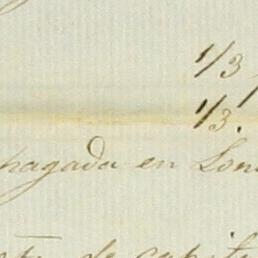 1/3
1/3.
pagada en Lon
de capit